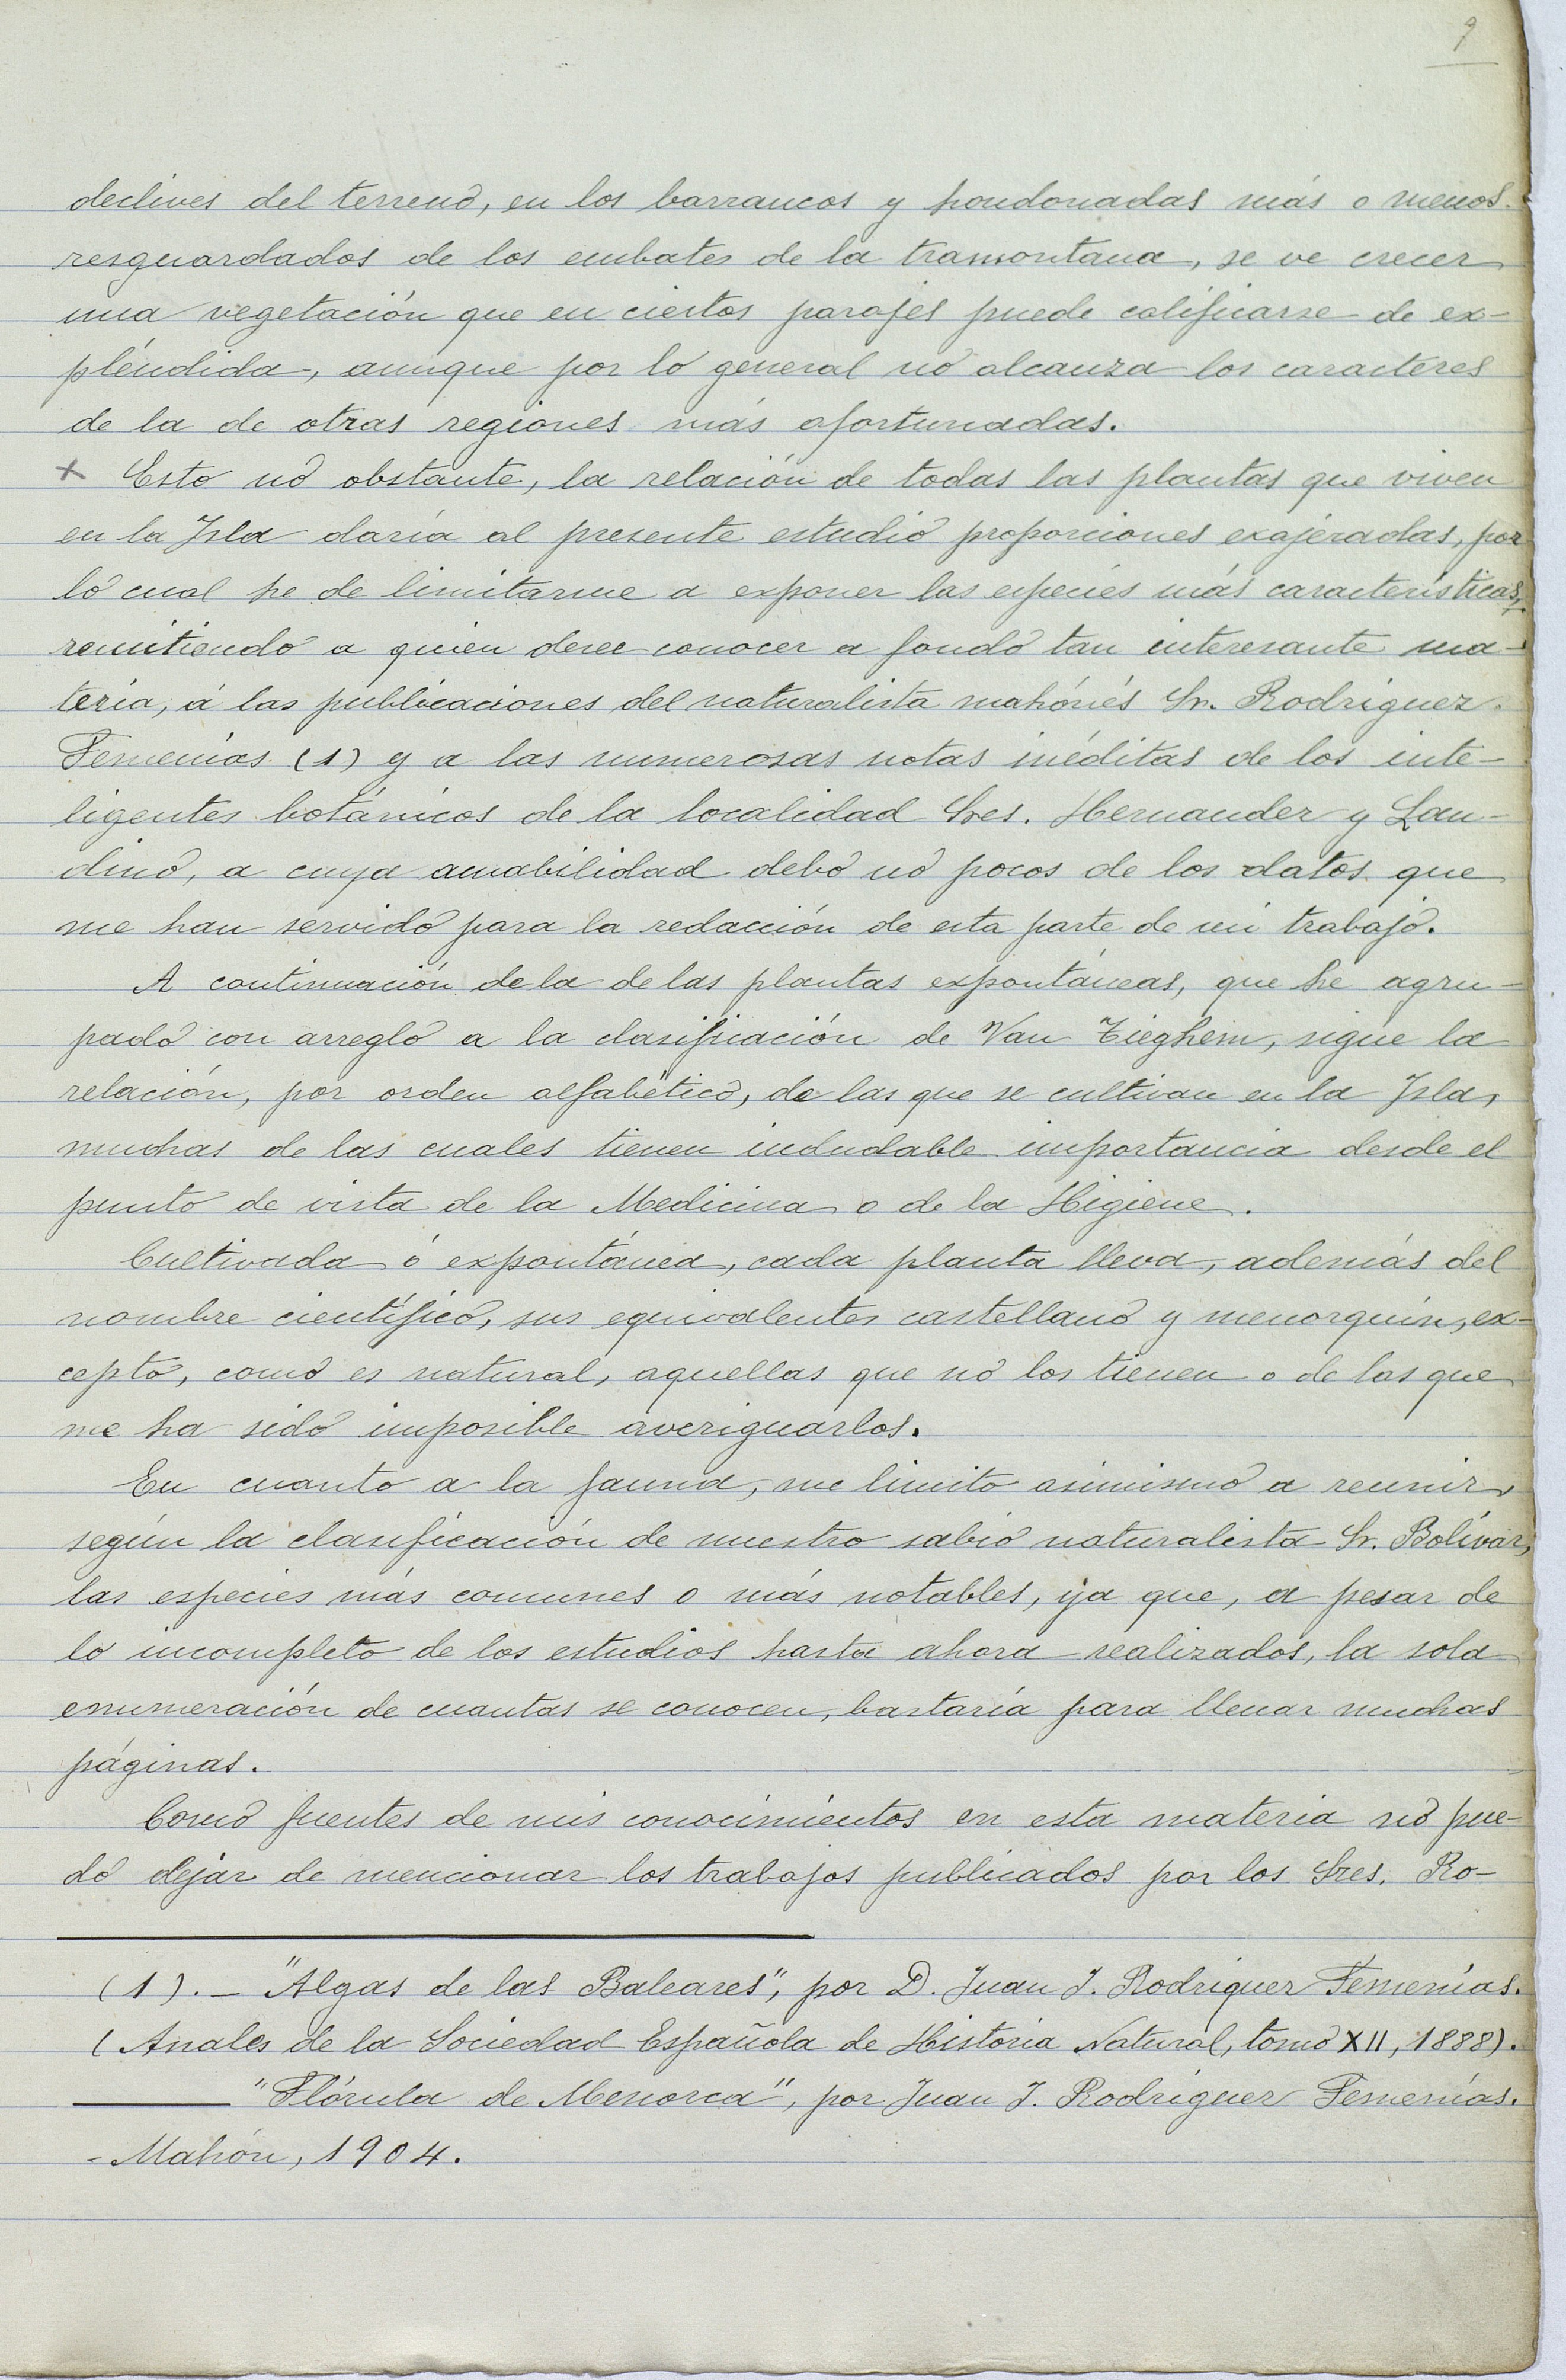 9
declives del terreno, en los barrancos y hondonadas más o menos
resguardados de los embates de la tramontana, se ve crecer
una vegetación que en ciertos parajes puede calificarse de ex-
pléndida, aunque por lo general no alcanza los caracteres
de la de otras regiones más afortunadas.
x Esto no obstante, la relación de todas las plantas que viven
en la Isla daría al presente estudio proporciones exajeradas, por
lo cual he de limitarme a exponer las especies más características,
remitiendo a quien desee conocer a fondo tan interesante ma-
teria, á las publicaciones del naturalista mahónés Sr. Rodríguez
Femenías (1) y a las numerosas notas inéditas de los inte-
ligentes botánicos de la localidad Sres. Hernander y Lan-
dino, a cuya amabilidad debo no pocos de los datos que
me han servido para la redacción de esta parte de mi trabajo.
A continuación de la de las plantas expontáneas, que he agru-
pado con arreglo a la clasificación de Van Tieghem, sigue la
relación, por orden alfabético, de las que se cultivan en la Isla,
muchas de las cuales tienen indudable importancia desde el
punto de vista de la Medicina o de la Higiene.
Cultivada ó expontánea, cada planta lleva, además del
nombre científico, sus equivalentes castellano y menorquín, ex-
cepto, como es natural, aquellas que no los tienen o de las que
me ha sido imposible averiguarlos.
En cuanto a la fauna, me limito asimismo a reunir,
según la clasificación de nuestro sabio naturalista Sr. Bolívar,
las especies más comunes o más notables, ya que, a pesar de
lo incompleto de los estudios hasta ahora realizados, la sola
enumeración de cuantas se conocen, bastaría para llenar muchas
páginas.
Como fuentes de mis conocimientos en esta materia no pue-
do dejar de mencionar los trabajos publicados por los Sres. Ro-
(1).- "Algas de las Baleares", por D. Juan J. Rodríguez Femenías.
(Anales de la Sociedad Española de Historia Natural, tomo XII, 1888).
"Flórula de Menorca", por Juan J. Rodríguez Femenías.
- Mahón, 1904.